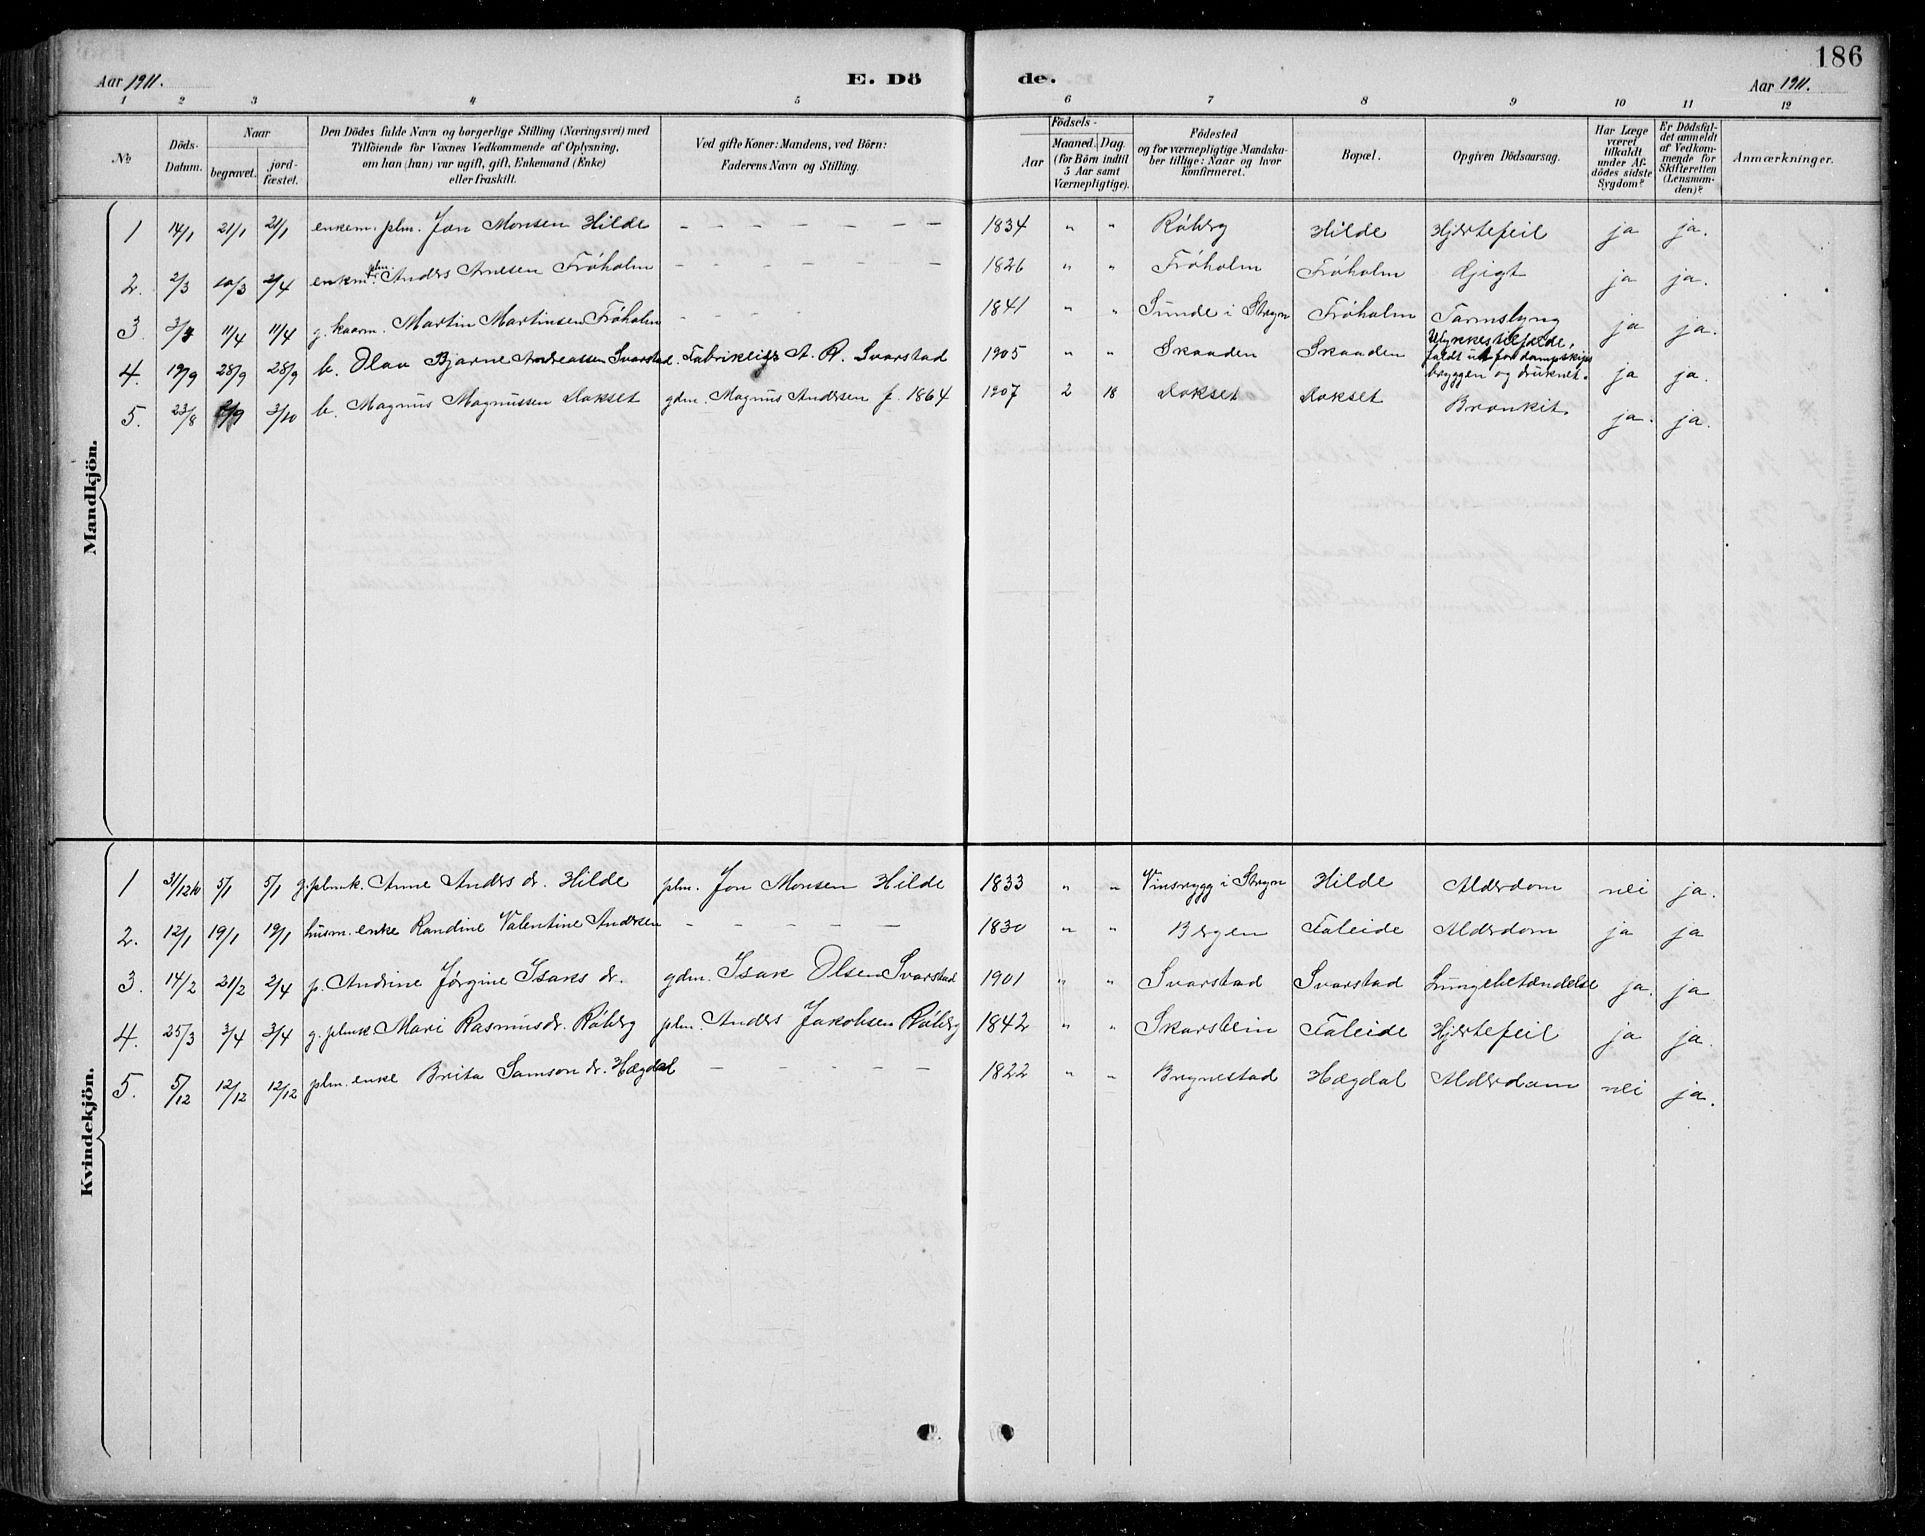 186
Aar 1911. E. Dö de. Aar 1911.
1 2 3 4 5 6 7 8 9 10 11 12
No
Döds-Datum.
Naar
begravet.
jord-fæstet.
Den Dödes fulde Navn og borgerlige Stilling (Næringsvei) med
Tilföiende for Voxnes Vedkommende af Oplysning,
om han (hun) var ugift, gift, Enkemand (Enke)
eller fraskilt.
Ved gifte Koner: Mandens, ved Börn:
Faderens Navn og Stilling.
Födsels-
Aar
Maaned. Dag.
(for Börn indtil
5 Aar samt
Værnepligtige).
Födested
og for værnepligtige Mandska-
ber tillige: Naar og hvor
konfirmeret.
Bopæl.
Opgiven Dödsaarsag.
Har Læge
været
tilkaldt
under Af-
dödes sidste
Sygdom?
Er Dödsfal-
det anmeldt
af Vedkom-
mende for
Skifteretten
(Lensman-
den)?
Anmærkninger.
Mandkjön.
1 14/1 21/1 21/1 enkem. plm. Jon Monsen Hilde – – – – – – – 1834 " " Röberg Hilde Hjertefeil ja ja.
2. 2/3 10/3 2/4 enkm. plm. Anders Andersen Fröholm – – – – – – – 1826 " " Fröholm Fröholm Gjigt ja ja.
3. 11/4 11/4 g. kaarm. Martin Martinsen Fröholm – – – – 1841 " " Sunde i Stryn Fröholm Tarmslyng ja ja.
4. 19/9 28/9 28/9 b. Olav Bjarne Andreassen Svarstad. Fabrikeier A. R. Svarstad 1905 " " Skaaden Skaaden Ulykkestilfælde,
faldt ut for dampskips
bryggen og druknet. ja ja.
5. 23/8 /9 3/10 b. Magnus Magnussen Lokset gdm. Magnus Andersen f. 1864 1907 2 18 Lokset Lokset Bronkit. ja. ja.
Kvindekjön.
1 31/12 10 5/1 5/1 g. plmk. Anne Anders dr. Hilde plm. Jon Monsen Hilde 1833 " " Vinsrygg i Stryn Hilde Alderdom nei ja.
2. 12/1 19/1 19/1 husm. enke Randine Valentine Andersen – – – – – 1830 " " Bergen Faleide Alderdom ja ja
3. 14/2 21/2 2/4 p. Andrine Jørgine Isaks dr. gdm. Isak Olsen Svarstad 1901 " " Svarstad Svarstad Lungebetændelse ja. ja
4. 25/3 3/4 3/4 g. plmk. Mari Rasmusdr. Röberg plm. Anders Jakobsen Röberg 1842 " " Skarstein Faleide Hjertefeil ja ja.
5. 5/12 12/12 12/12 plm. enke Brita Samson dr. Hægdal – – – – – 1822 " " Brynestad Hægdal Alderdom nei ja.